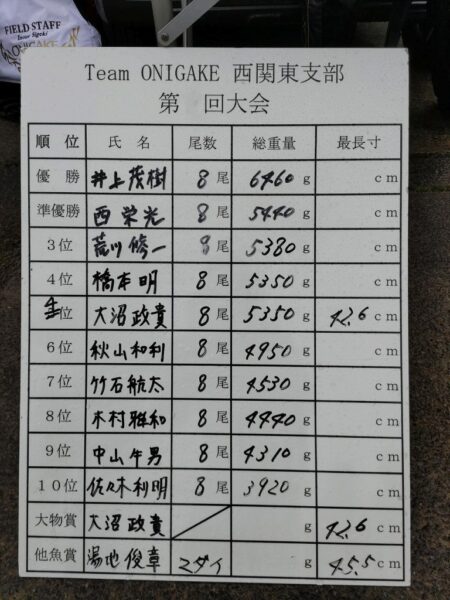 FIELD STAFF
Inoue Sigeki
ONIGAKE
Team ONIGAKE 西関東支部
第 回大会
順 位 氏 名 尾数 総重量 最長寸
優 勝 井上茂樹 8 尾 6460 g cm
準優勝 西 栄光 8 尾 5440 g cm
3位 荒川 修一 8 尾 5380 g cm
4位 橋本 明 8 尾 5350 g cm
位 大沼政貴 8 尾 5350 g 42.6 cm
6位 秋山和利 8 尾 4950 g cm
7位 竹石航太 8 尾 4530 g cm
8位 木村雅和 8 尾 4440 g cm
9位 中山牛男 8 尾 4310 g cm
10位 佐々木利明 8 尾 3920 g cm
大物賞 大沼 政貴 g 42.6 cm
他魚賞 湯地 俊章 マダイ g 45.5 cm